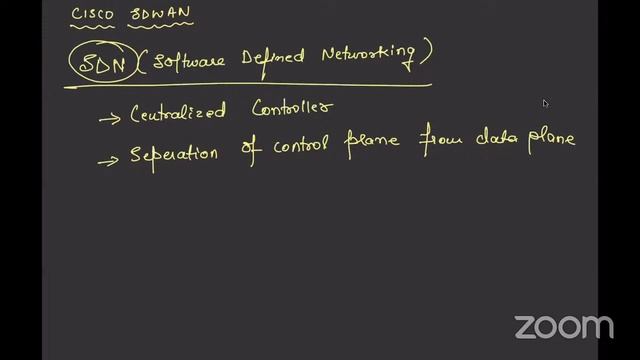 CISCO SDWAN
SDN (Software Defined Networking)
→ Centralized Controller
→ Seperation of control plane from data plane
zoom